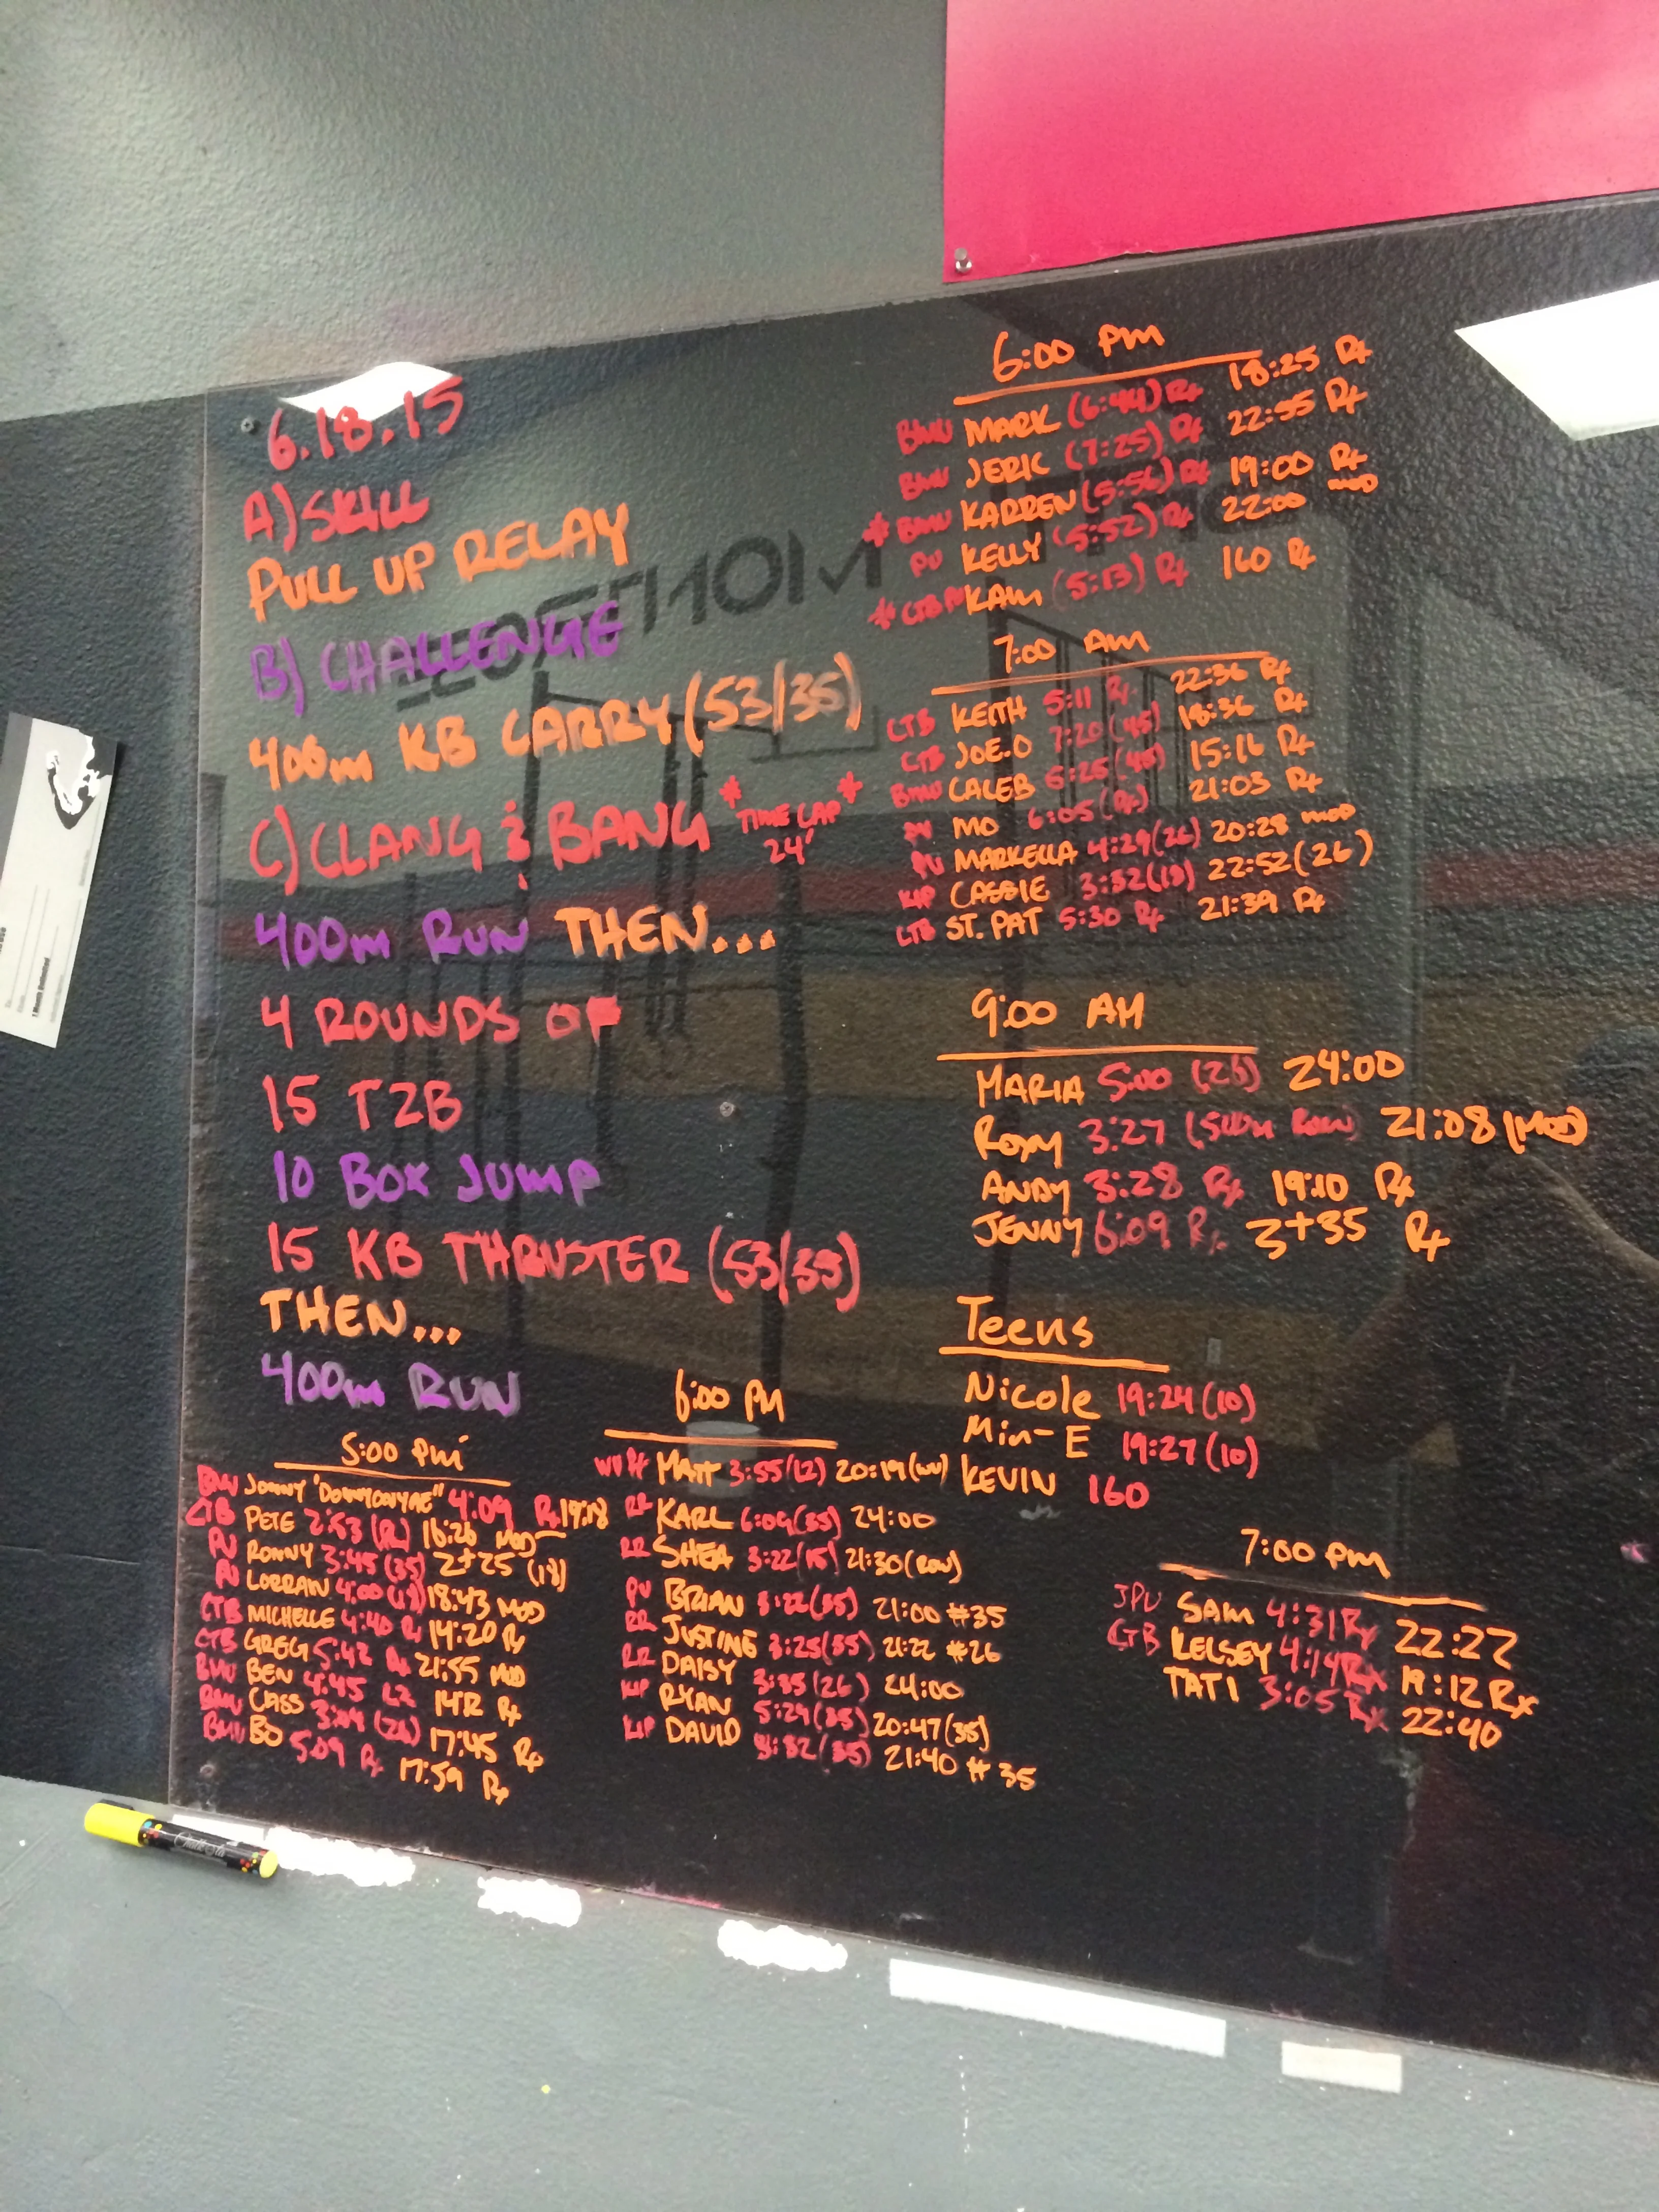 6.18.15
A) SKILL
PULL UP RELAY
B) CHALLENGE
400m KB CARRY (53/35)
C) CLANG & BANG *TIME CAP 24'*
400m RUN THEN...
4 ROUNDS OF
15 T2B
10 BOX JUMP
15 KB THRUSTER (53/35)
THEN...
400m RUN
6:00 PM
BMU MARK (6:44) Rx 18:25 Rx
BMU JERIC (7:25) Rx 22:55 Rx
* BMU KARREN (5:56) Rx 19:00 Rx
PU KELLY (5:52) Rx 22:00 MOD
* CTB KAM (5:13) Rx 160 Rx
7:00 AM
CTB KEITH 5:11 Rx 22:36 Rx
CTB JOE.O 7:20 (45) 18:36 Rx
BMU CALEB 5:25 (45) 15:16 Rx
PU MO 6:05 (Rx) 21:03 Rx
PU MARKELLA 4:29 (26) 20:28 MOD
KIP CASSIE 3:32 (18) 22:52 (26)
CTB ST. PAT 5:30 Rx 21:39 Rx
9:00 AM
MARIA 5:00 (26) 24:00
ROXY 3:27 (500m ROW) 21:08 (MOD)
ANDY 3:28 Rx 19:10 Rx
JENNY 6:09 Rx 3+35 Rx
Teens
Nicole 19:24 (10)
Min-E 19:27 (10)
KEVIN 160
5:00 PM
BMU JONNY 4:09 Rx 19:18
CTB PETE 2:53 (R) 16:26 MOD
PU RONNY 3:45 (35) 2+25 (18)
PU LORRAN 4:00 (18) 18:43 MOD
CTB MICHELLE 4:40 Rx 14:20 Rx
CTB GREG 5:42 Rx 21:55 MOD
BMU BEN 4:45 Rx
BMU CASS 3:09 (26) 17:45 Rx
BMU BO 5:09 Rx 17:59 Rx
6:00 PM
MATT 3:55 (12) 20:19
RR KARL 6:09 (35) 24:00
RR SHEA 3:22 (15) 21:30 (ROW)
PU BRIAN 3:22 (35) 21:00 #35
RR JUSTINE 3:25 (35) 21:22 #26
RR DAISY 3:35 (26) 24:00
KIP RYAN 5:29 (35) 20:47 (35)
KIP DAVID 3:32 (35) 21:40 #35
7:00 PM
JPU SAM 4:31 Rx 22:22
CTB KELSEY 4:14 Rx 19:12 Rx
TATI 3:05 Rx 22:40
1 Month Unlimited